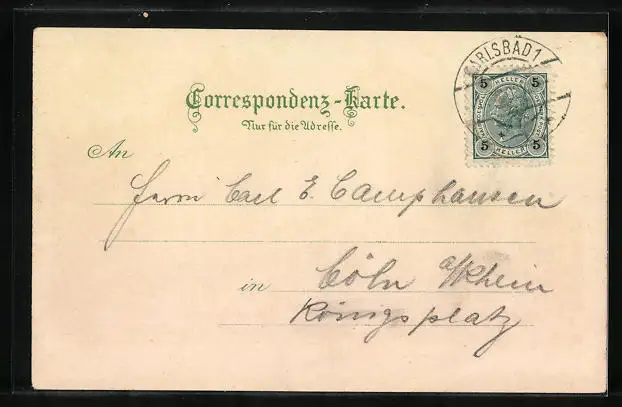 CARLSBAD 1
5 HELLER 5
5 HELLER 5
Correspondenz-Karte.
Nur für die Adresse.
An
Herrn Carl E. Camphausen
in Cöln a/Rhein
Königsplatz